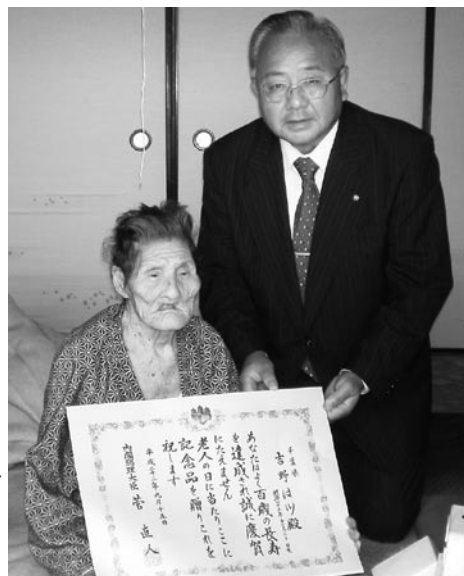 千葉県
吉野はツ殿
あなたはよく百歳の長寿
を達成され誠に慶賀
にたえません
老人の日に当たりここに
記念品を贈りこれを
祝します
平成二十二年九月十五日
内閣総理大臣 菅 直人